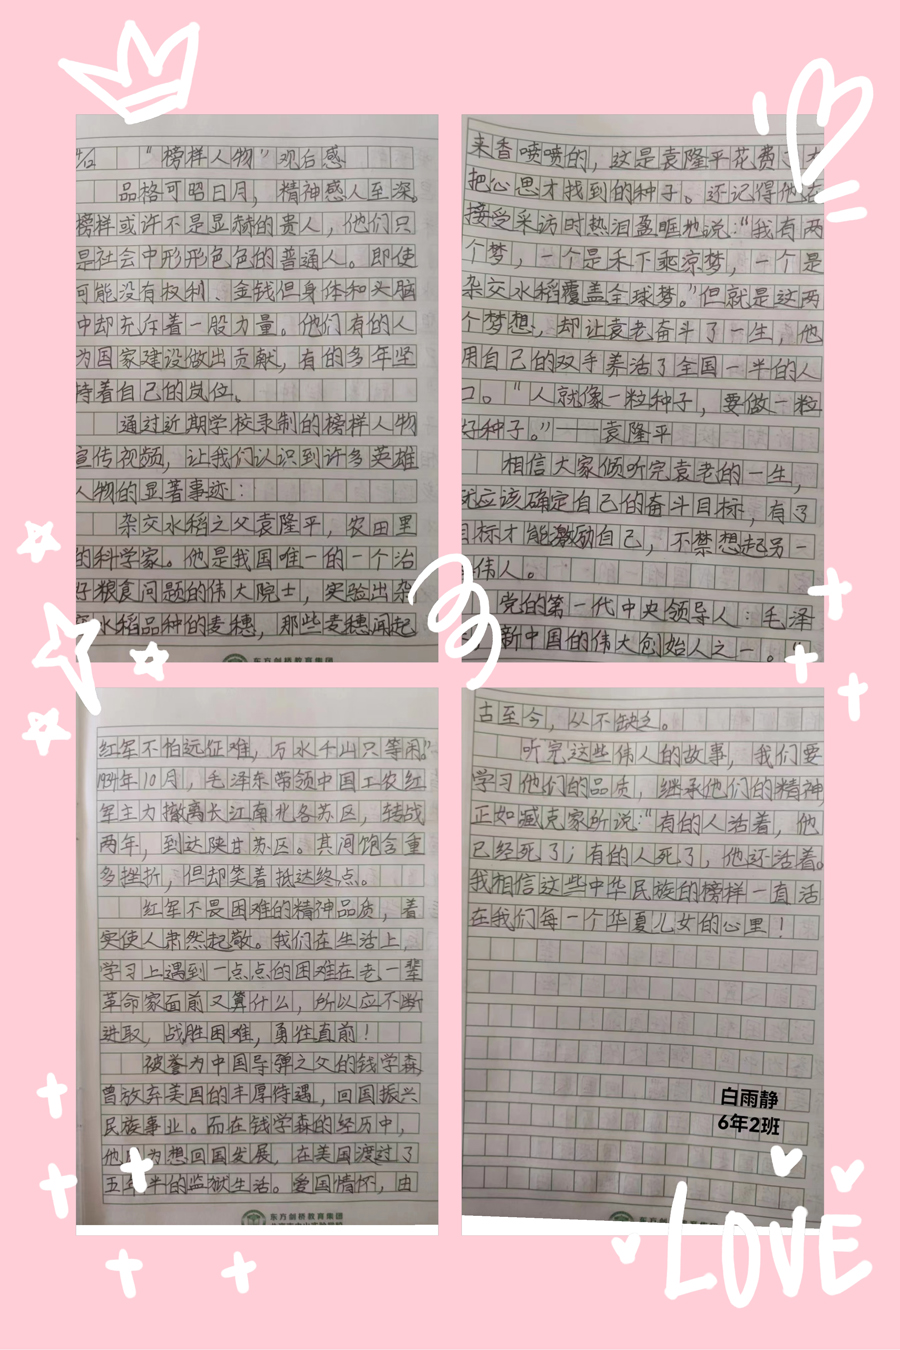 "榜样人物"观后感
品格可昭日月，精神感人至深。
榜样或许不是显赫的贵人，他们只
是社会中形形色色的普通人。即使
可能没有权利、金钱但身体和头脑
中却充斥着一股力量。他们有的人
为国家建设做出贡献，有的多年坚
持着自己的岗位。
通过近期学校录制的榜样人物
宣传视频，让我们认识到许多英雄
人物的显著事迹：
杂交水稻之父袁隆平，农田里
的科学家。他是我国唯一的一个治
好粮食问题的伟大院士，实验出杂
水稻品种的麦穗，那些麦穗闻起
来香喷喷的，这是袁隆平花费了
把心思才找到的种子。还记得他在
接受采访时热泪盈眶地说："我有两
个梦，一个是禾下乘凉梦，一个是
杂交水稻覆盖全球梦。"但就是这两
个梦想，却让袁老奋斗了一生，他
用自己的双手养活了全国一半的人
口。"人就像一粒种子，要做一粒
好种子。"——袁隆平
相信大家倾听完袁老的一生，
就应该确定自己的奋斗目标，有了
目标才能激励自己，不禁想起另一
伟人。
党的第一代中央领导人：毛泽
新中国的伟大创始人之一。"
红军不怕远征难，万水千山只等闲。"
1934年10月，毛泽东带领中国工农红
军主力撤离长江南北各苏区，转战
两年，到达陕甘苏区。其间饱含重
多挫折，但却笑着抵达终点。
红军不畏困难的精神品质，着
实使人肃然起敬。我们在生活上，
学习上遇到一点点的困难在老一辈
革命家面前又算什么，所以应不断
进取，战胜困难，勇往直前！
被誉为中国导弹之父的钱学森
曾放弃美国的丰厚待遇，回国振兴
民族事业。而在钱学森的经历中，
他因为想回国发展，在美国渡过了
五年半的监狱生活。爱国情怀，由
东方剑桥教育集团
古至今，从不缺乏。
听完这些伟人的故事，我们要
学习他们的品质，继承他们的精神
正如臧克家所说："有的人活着，他
已经死了；有的人死了，他还活着。
我相信这些中华民族的榜样一直活
在我们每一个华夏儿女的心里！
白雨静
6年2班
LOVE